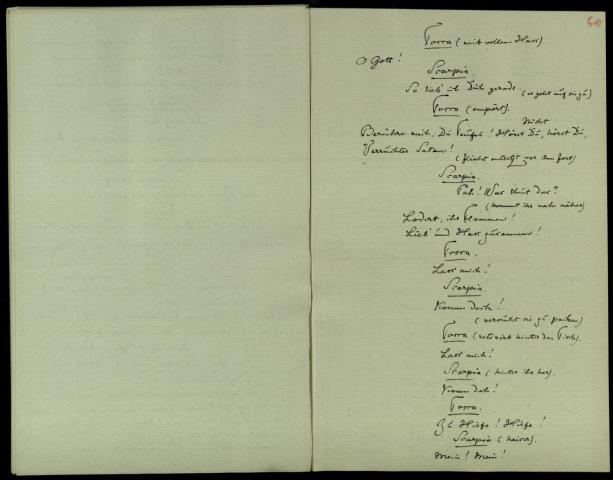 60
Tosca (mit vollem Hass).
O Gott!
Scarpia.
So lieb' ich Dich gerade! (er geht auf sie zu)
Tosca (empört).
Nicht
Berühre mich, Du Teufel! Hörst Du, hörst Du,
Verruchter Satan!
(flieht entsetzt vor ihm fort)
Scarpia.
Pah! Was thut das?
(kommt ihr noch näher)
Lodert, ihr Flammen!
Lieb' und Hass zusammen!
Tosca.
Lass mich!
Scarpia.
Komm doch!
(versucht sie zu packen)
Tosca (retirirt hinter den Tisch).
Lass mich!
Scarpia (hinter ihr her).
Komm doch!
Tosca.
Zu Hilfe! Hilfe!
Scarpia (heiser).
Mein! Mein!